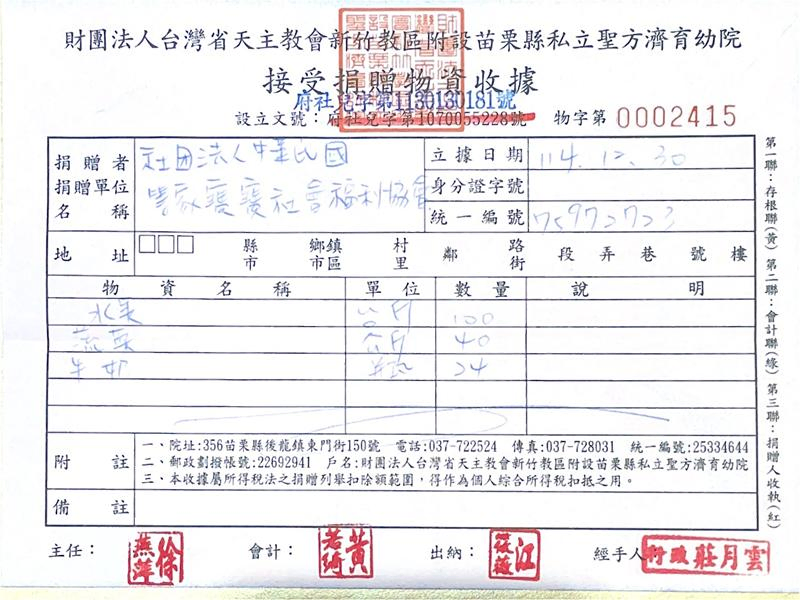 財團法人台灣省天主教會新竹教區附設苗栗縣私立聖方濟育幼院
接受捐贈物資收據
府社兒字第1130130181號
設立文號：府社兒字第1070055228號 物字第 0002415
捐贈者
捐贈單位
名稱
社团法人中華民國
寶寶社會福利協會
立據日期 114.12.30
身分證字號
統一編號
地址 縣市 鄉鎮市區 村里 鄰 路街 段 弄 巷 號 樓
物資名稱 單位 數量 說明
水果 公斤 100
蔬菜 公斤 40
牛奶 瓶 24
附註
一、院址:356苗栗縣後龍鎮東門街150號 電話:037-722524 傳真:037-728031 統一編號:25334644
二、郵政劃撥帳號:22692941 戶名:財團法人台灣省天主教會新竹教區附設苗栗縣私立聖方濟育幼院
三、本收據屬所得稅法之捐贈列舉扣除額範圍，得作為個人綜合所得稅扣抵之用。
備註
主任： 徐燕萍
會計： 黃若綺
出納： 江
經手人 行政莊月雲
第一聯：存根聯(黃) 第二聯：會計聯(綠) 第三聯：捐贈人收執(紅)